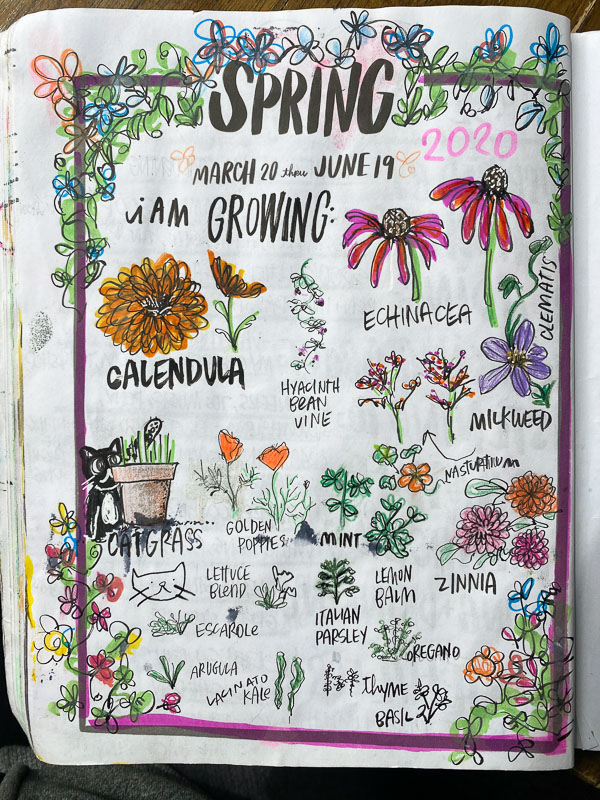 SPRING
2020
MARCH 20 thru JUNE 19
i AM GROWING:
ECHINACEA
CLEMATIS
CALENDULA
HYACINTH
BEAN
VINE
MILKWEED
NASTURTIUM
CATGRASS
GOLDEN
POPPIES
MINT
ZINNIA
LETTUCE
BLEND
LEMON
BALM
ITALIAN
PARSLEY
ESCAROLE
OREGANO
ARUGULA
LACINATO
KALE
THYME
BASIL